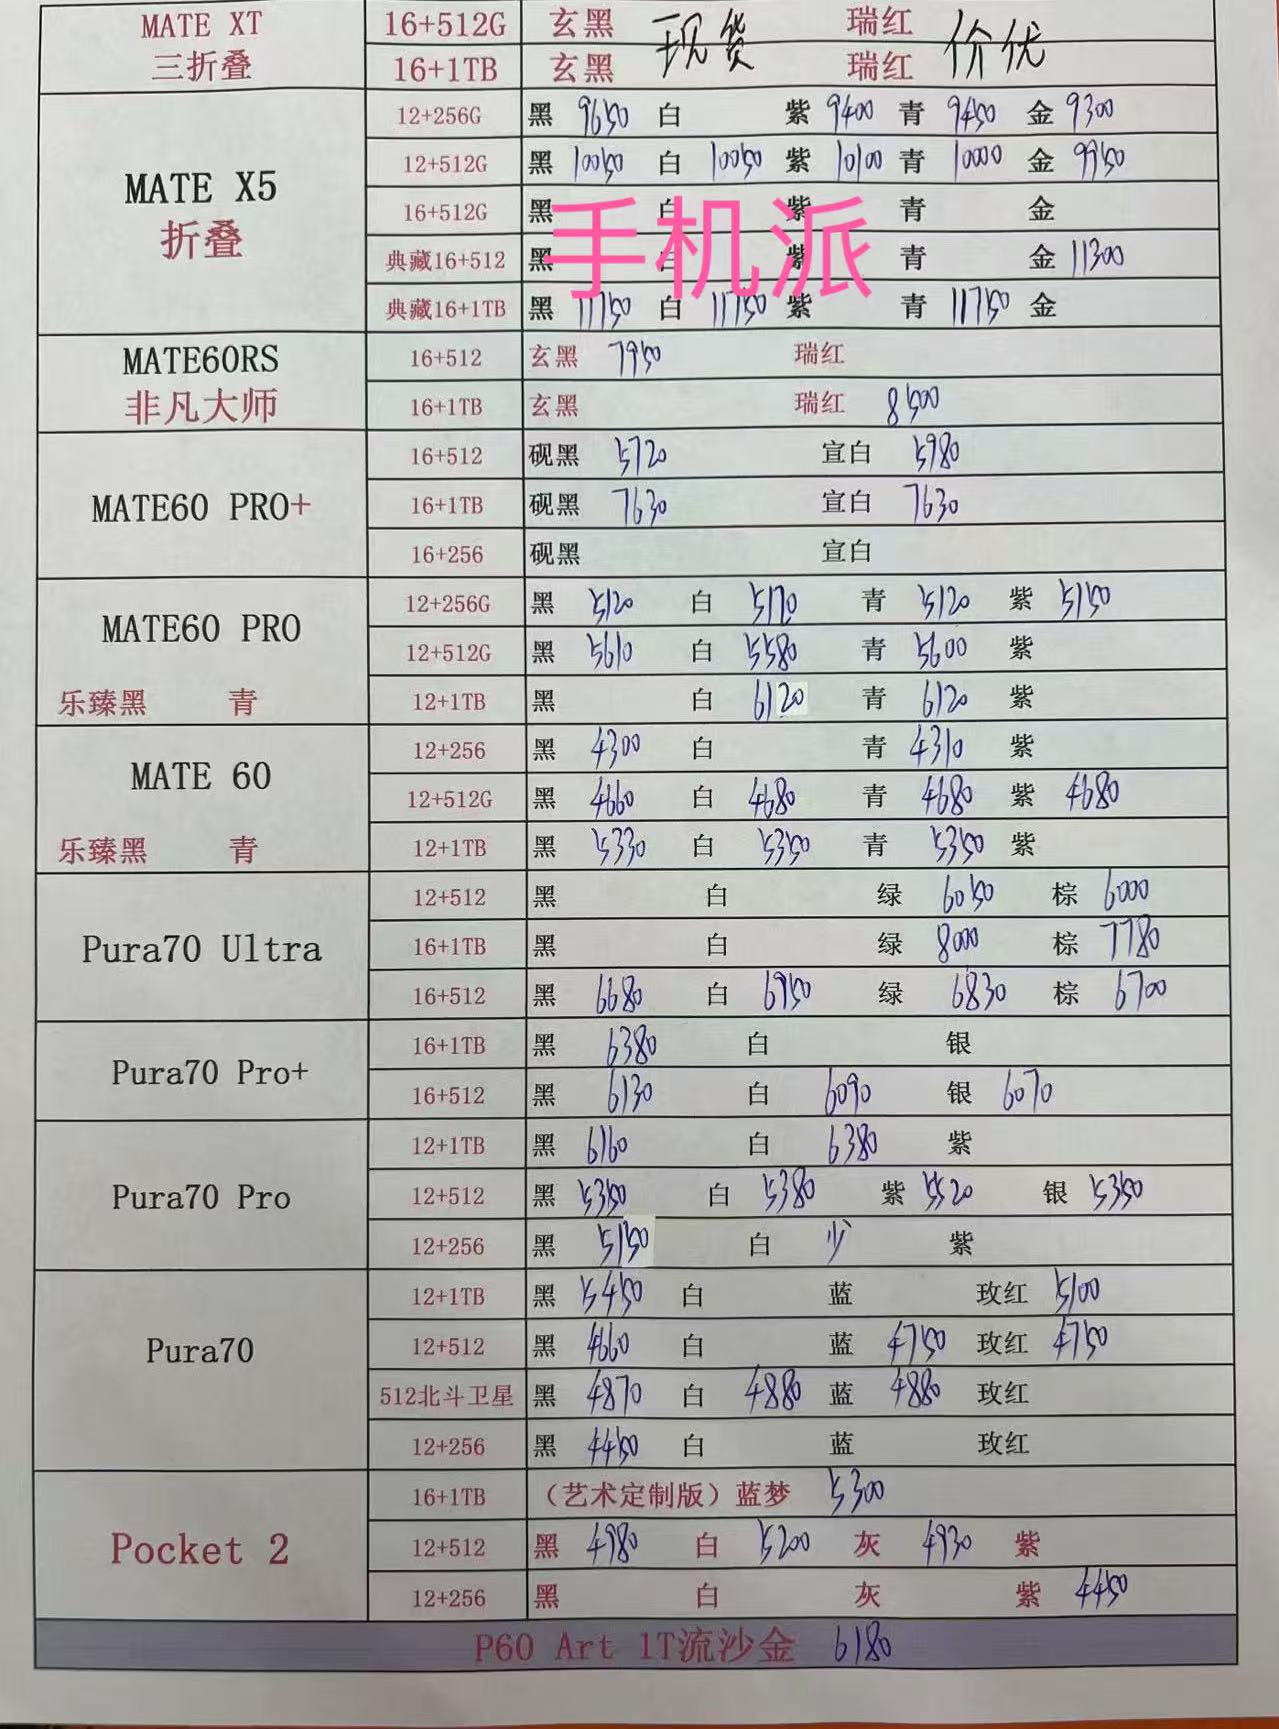 MATE XT 16+512G 玄黑 现货 瑞红 价优
三折叠 16+1TB 玄黑 瑞红
12+256G 黑 9650 白 紫 9400 青 9450 金 9300
MATE X5 12+512G 黑 10050 白 10050 紫 10100 青 10000 金 9950
折叠 16+512G 黑 白 紫 青 金
手机派
典藏16+512 黑 白 紫 青 金 11300
典藏16+1TB 黑 11750 白 11750 紫 青 11750 金
MATE60RS 16+512 玄黑 7950 瑞红
非凡大师 16+1TB 玄黑 瑞红 8500
16+512 砚黑 5720 宣白 5980
MATE60 PRO+ 16+1TB 砚黑 7630 宣白 7630
16+256 砚黑 宣白
12+256G 黑 5120 白 5170 青 5120 紫 5150
MATE60 PRO 12+512G 黑 5610 白 5580 青 5600 紫
乐臻黑 青 12+1TB 黑 白 6120 青 6120 紫
12+256 黑 4300 白 青 4310 紫
MATE 60 12+512G 黑 4660 白 4680 青 4680 紫 4680
乐臻黑 青 12+1TB 黑 5330 白 5350 青 5350 紫
12+512 黑 白 绿 6050 棕 6000
Pura70 Ultra 16+1TB 黑 白 绿 8000 棕 7780
16+512 黑 6680 白 6950 绿 6830 棕 6700
16+1TB 黑 6380 白 银
Pura70 Pro+ 16+512 黑 6130 白 6090 银 6070
12+1TB 黑 6160 白 6380 紫
Pura70 Pro 12+512 黑 5350 白 5380 紫 5520 银 5350
12+256 黑 5150 白 少 紫
12+1TB 黑 5450 白 蓝 玫红 5100
Pura70 12+512 黑 4660 白 蓝 4750 玫红 4750
512北斗卫星 黑 4870 白 4880 蓝 4880 玫红
12+256 黑 4450 白 蓝 玫红
16+1TB （艺术定制版）蓝梦 5300
Pocket 2 12+512 黑 4980 白 5200 灰 4930 紫
12+256 黑 白 灰 紫 4450
P60 Art 1T流沙金 6180